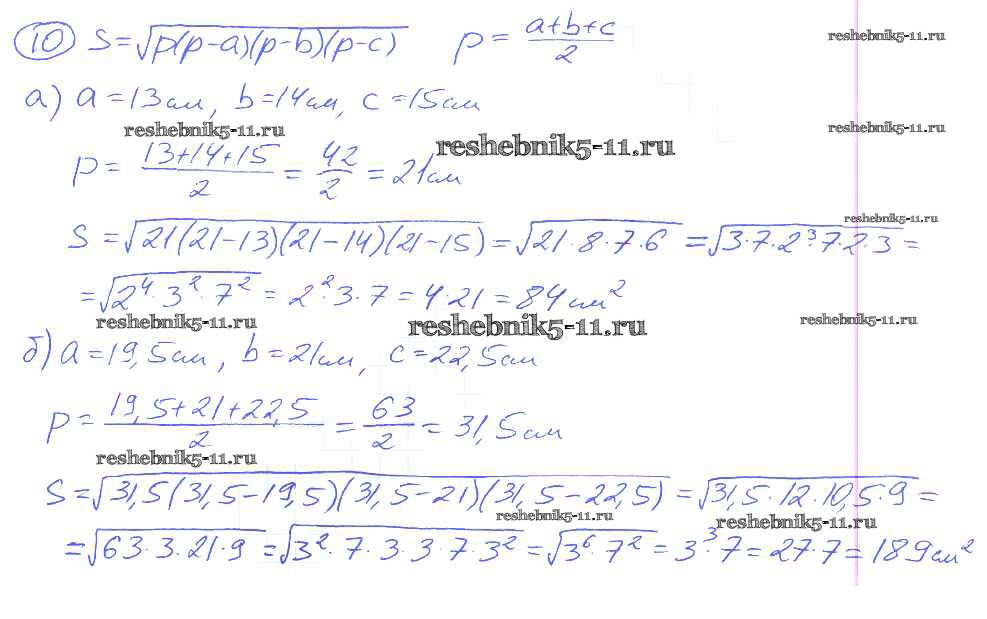 10 S=√p(p-a)(p-b)(p-c) p= a+b+c/2
reshebnik5-11.ru
а) a=13см, b=14см, c=15см
reshebnik5-11.ru
reshebnik5-11.ru
reshebnik5-11.ru
p= 13+14+15/2 = 42/2 = 21см
reshebnik5-11.ru
S=√21(21-13)(21-14)(21-15) = √21·8·7·6 = √3·7·2³·7·2·3 =
= √2⁴·3²·7² = 2²·3·7 = 4·21 = 84см²
reshebnik5-11.ru
reshebnik5-11.ru
reshebnik5-11.ru
б) a=19,5см, b=21см, c=22,5см
p= 19,5+21+22,5/2 = 63/2 = 31,5см
reshebnik5-11.ru
S=√31,5(31,5-19,5)(31,5-21)(31,5-22,5) = √31,5·12·10,5·9 =
reshebnik5-11.ru
reshebnik5-11.ru
= √63·3·21·9 = √3²·7·3·3·7·3² = √3⁶·7² = 3³·7 = 27·7 = 189см²